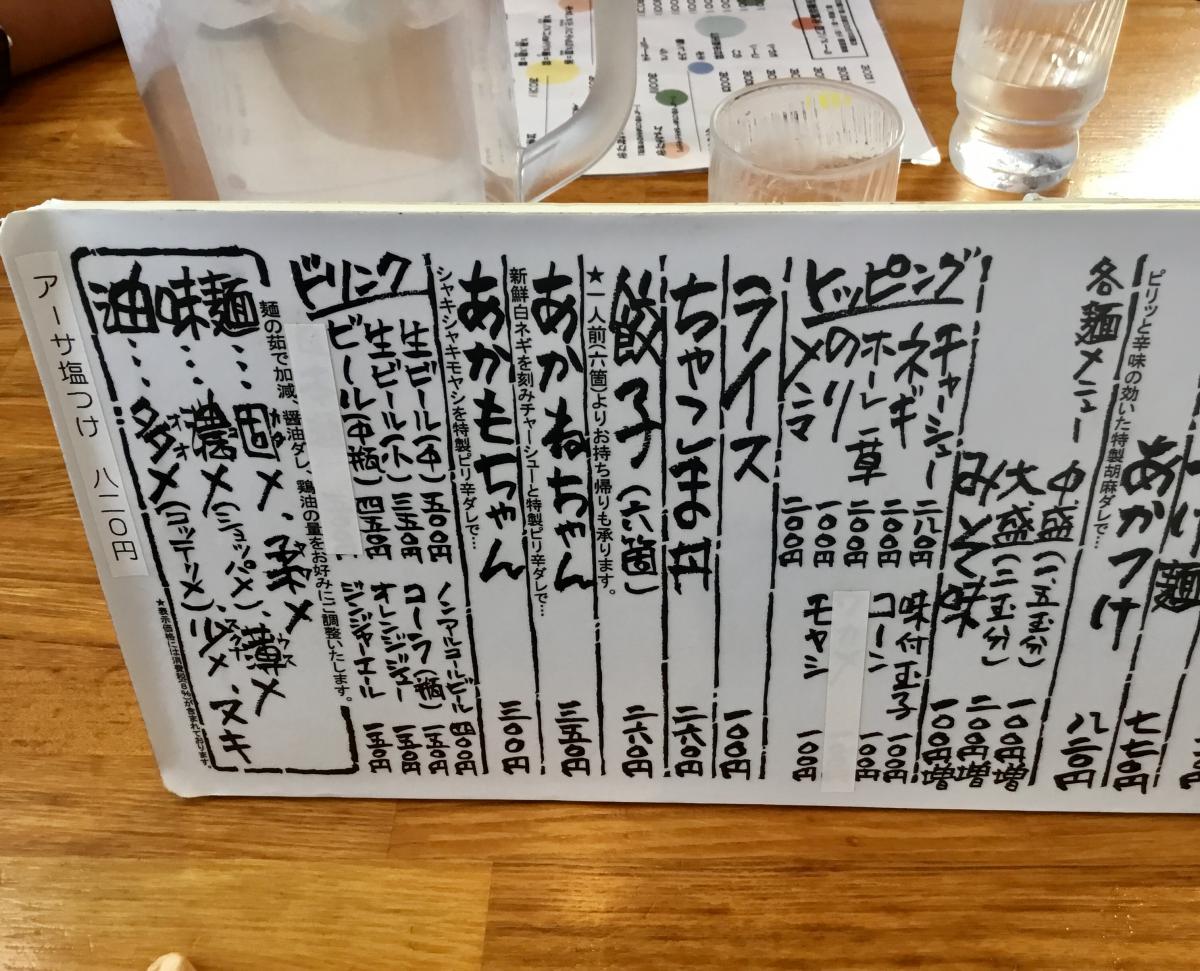 麺
ピリッと辛味の効いた特製胡麻ダレで…
あかつけ 七七〇円
各麺メニュー 八二〇円
中盛(一、五玉分) 一〇〇円増
大盛(二玉分) 二〇〇円増
みそ味 一〇〇円増
トッピング
チャーシュー 二八〇円
ネギ 二〇〇円
ホーレン草 二〇〇円
のり 一〇〇円
メンマ 二〇〇円
味付玉子 一〇〇円
コーン 一〇〇円
モヤシ 一〇〇円
ライス 一〇〇円
ちゃこま丼 二六〇円
餃子(六箇) 二六〇円
★一人前(六箇)よりお持ち帰りも承ります。
あかねちゃん 三五〇円
新鮮白ネギを刻みチャーシューと特製ピリ辛ダレで…
あかもちゃん 三〇〇円
シャキシャキモヤシを特製ピリ辛ダレで…
ドリンク
生ビール(中) 五五〇円
生ビール(小) 三五〇円
ビール(中瓶) 四五〇円
ノンアルコールビール 四〇〇円
コーラ(瓶) 一五〇円
オレンジジュー 一五〇円
ジンジャーエール 一五〇円
麺の茹で加減、醤油ダレ、鶏油の量をお好みにご調整いたします。
麺…固メ、柔メ
味…濃メ(ショッパメ)、薄メ
油…多メ(コッテリメ)、少メ、ヌキ
★表示価格には消費税(8%)が含まれております。
アーサ塩つけ 八二〇円